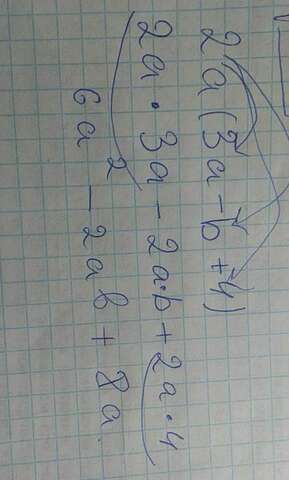 2a(3a-b+4)
2a·3a-2a·b+2a·4
6a²-2ab+8a